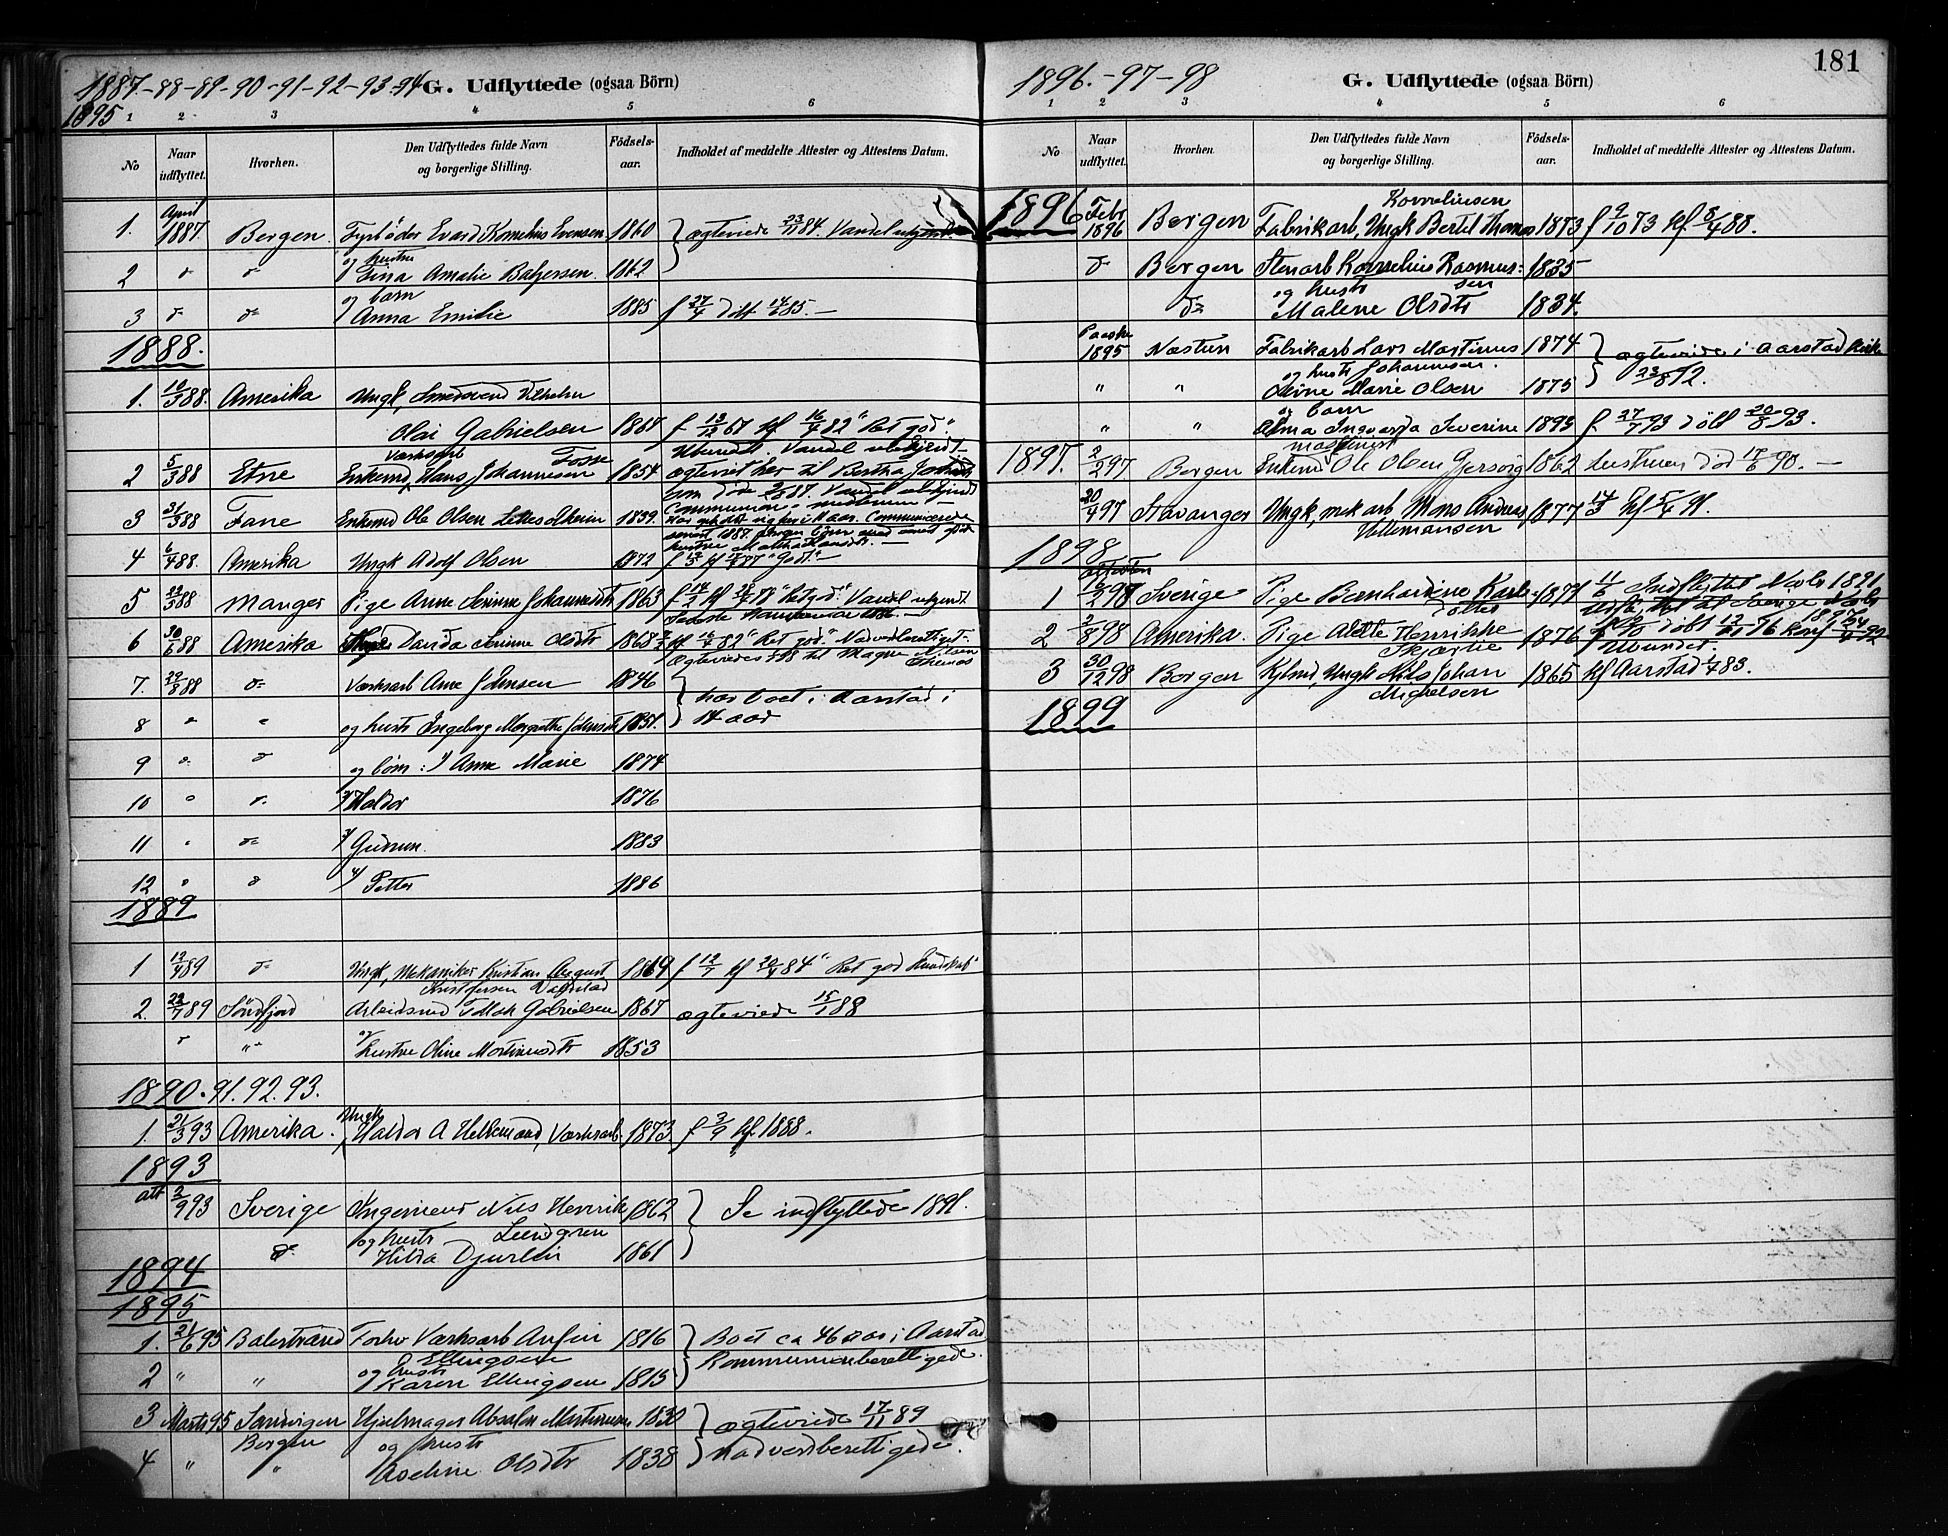 1887-88-89-90-91-92-93-94
G. Udflyttede (ogsaa Börn)
1895
1 2 3 4 5 6
No
Naar udflyttet.
Hvorhen.
Den Udflyttedes fulde Navn og borgerlige Stilling.
Födsels-aar.
Indholdet af meddelte Attester og Attestens Datum.
1. April 1887 Bergen. Fyrböder Evard Kornelius Evensen 1860 ægteviede 23/11 84. Vandel ubekjendt
2 d d og hustru Lina Amalie 1862
3 d d og barn Anna Emilie 1885 f 27/4 döbt 14/6 85. —
1888.
1. 16/3 88. Amerika Ungk, Smedsvend Vilhelm
Olai Gabrielsen 1867 f 13/12 67 kf 16/4 82 "Ret god."
Ubundet. Vandel ubekjendt
2 5/3 88 Etne Værksarb Enkemd Hans Johannesen Fosse 1854 ægteviet her til Bertha
som döde 87. Vandel ubekjendt
3 31/3 88 Fane Enkemd Ole Olsen 1839.
4 6/4 88. Amerika Ungk Adolf Olsen 1872 "Godt." —
5 22/3 88 Manger Pige Anne Serine Johannesdtr 1863 Vandel ubekjendt
6 30/6 88 Amerika Davida Serine Olsdtr 1868 82 "Ret god." Nadverberettiget.
Ægteviedes til Magne Nilsen
7. 29/8 88 d Værksarb Arne Johnsen 1846 har boet i Aarstad i
14 aar
8 " " og hustr Ingeborg Margrethe Johnsdtr 1851.
9 d d og börn: 1) Anna Marie 1874
10 " d 2) Haldor 1876
11 " d 3) Gudrun. 1883
12 " d 4) Petter 1886
1889
1 12/4 89 d Ungk, Mekaniker Kristian August 1869 f 12/7 kf 20/4 84 "Ret god Kundskab"
Kristofersen
2. 22/7 89 Söndfjord Arbeidsmd Tollak Gabrielsen 1867 ægteviede 15/7 88
" " og hustru Oline Martinusdtr 1853
1890. 91. 92. 93.
1. 21/3 93 Amerika. Ungk, Haldor A Hellemand, Værksarb 1873 f 2/9 kf. 1888.
1893
att 2/9 93 Sverige Ingenieur Nils Henrik Lundgren 1862 Se indflyttede 1891.
d og hustr Hilda Djurlin 1861
1894
1895
1. 21/6 95 Balestrand Forhv Værksarb Anfin Ellingsen 1816 Boet ca 46 aar i Aarstad
Kommunionberettigede
2 " " og hustr Karen Ellingsen 1815
3 Marts 95 Sandvigen Bergen Hjulmager Absalon Martinusen 1830 ægteviede 17/11 89
nadverdberettigede.
4 " " og hustr Aseline Olsdtr 1838
181
1896.-97-98
G. Udflyttede (ogsaa Börn)
1 2 3 4 5 6
No
Naar udflyttet.
Hvorhen.
Den Udflyttedes fulde Navn og borgerlige Stilling.
Födsels-aar.
Indholdet af meddelte Attester og Attestens Datum.
1896 Febr 1896 Bergen Fabrikarb, Ungk Bertel Thomas Korneliusen 1873 f 9/10 73 kf. 8/4 88.
d Bergen Stenarb Kornelius Rasmussen 1835
d og hustr Malene Olsdtr 1834.
Paaske 1895 Næstun Fabrikarb Lars Martinus Johannesen. 1874 ægteviede i Aarstad kirke
23/8 92.
" " og hustr Oline Marie Olsen 1875
" " og barn Alma Ingvarda Severine 1893 f 27/7 93 döbt 20/8 93.
1897. 2/2 97. Bergen Maskinist Enkemd Ole Olsen Gjersvig 1862 hustruen död 17/6 90. —
20/4 97 Stavanger Ungk, mek arb Mons Andreas Hellemansen 1877 14/3 kf 5/4 91.
1898
1 attesten 12/2 98 Sverige Pige Bernhardine Karlsdotter 1877 11/6 Indflyttet No 1891
2 2/8 98 Amerika. Pige Alette Henrikke 1876 döbt 76 konf 24/4 92
Ubundet.
3 30/12 98 Bergen Kjbmd, Ungk Nils Johan Michelsen 1865 kf Aarstad 83.
1899